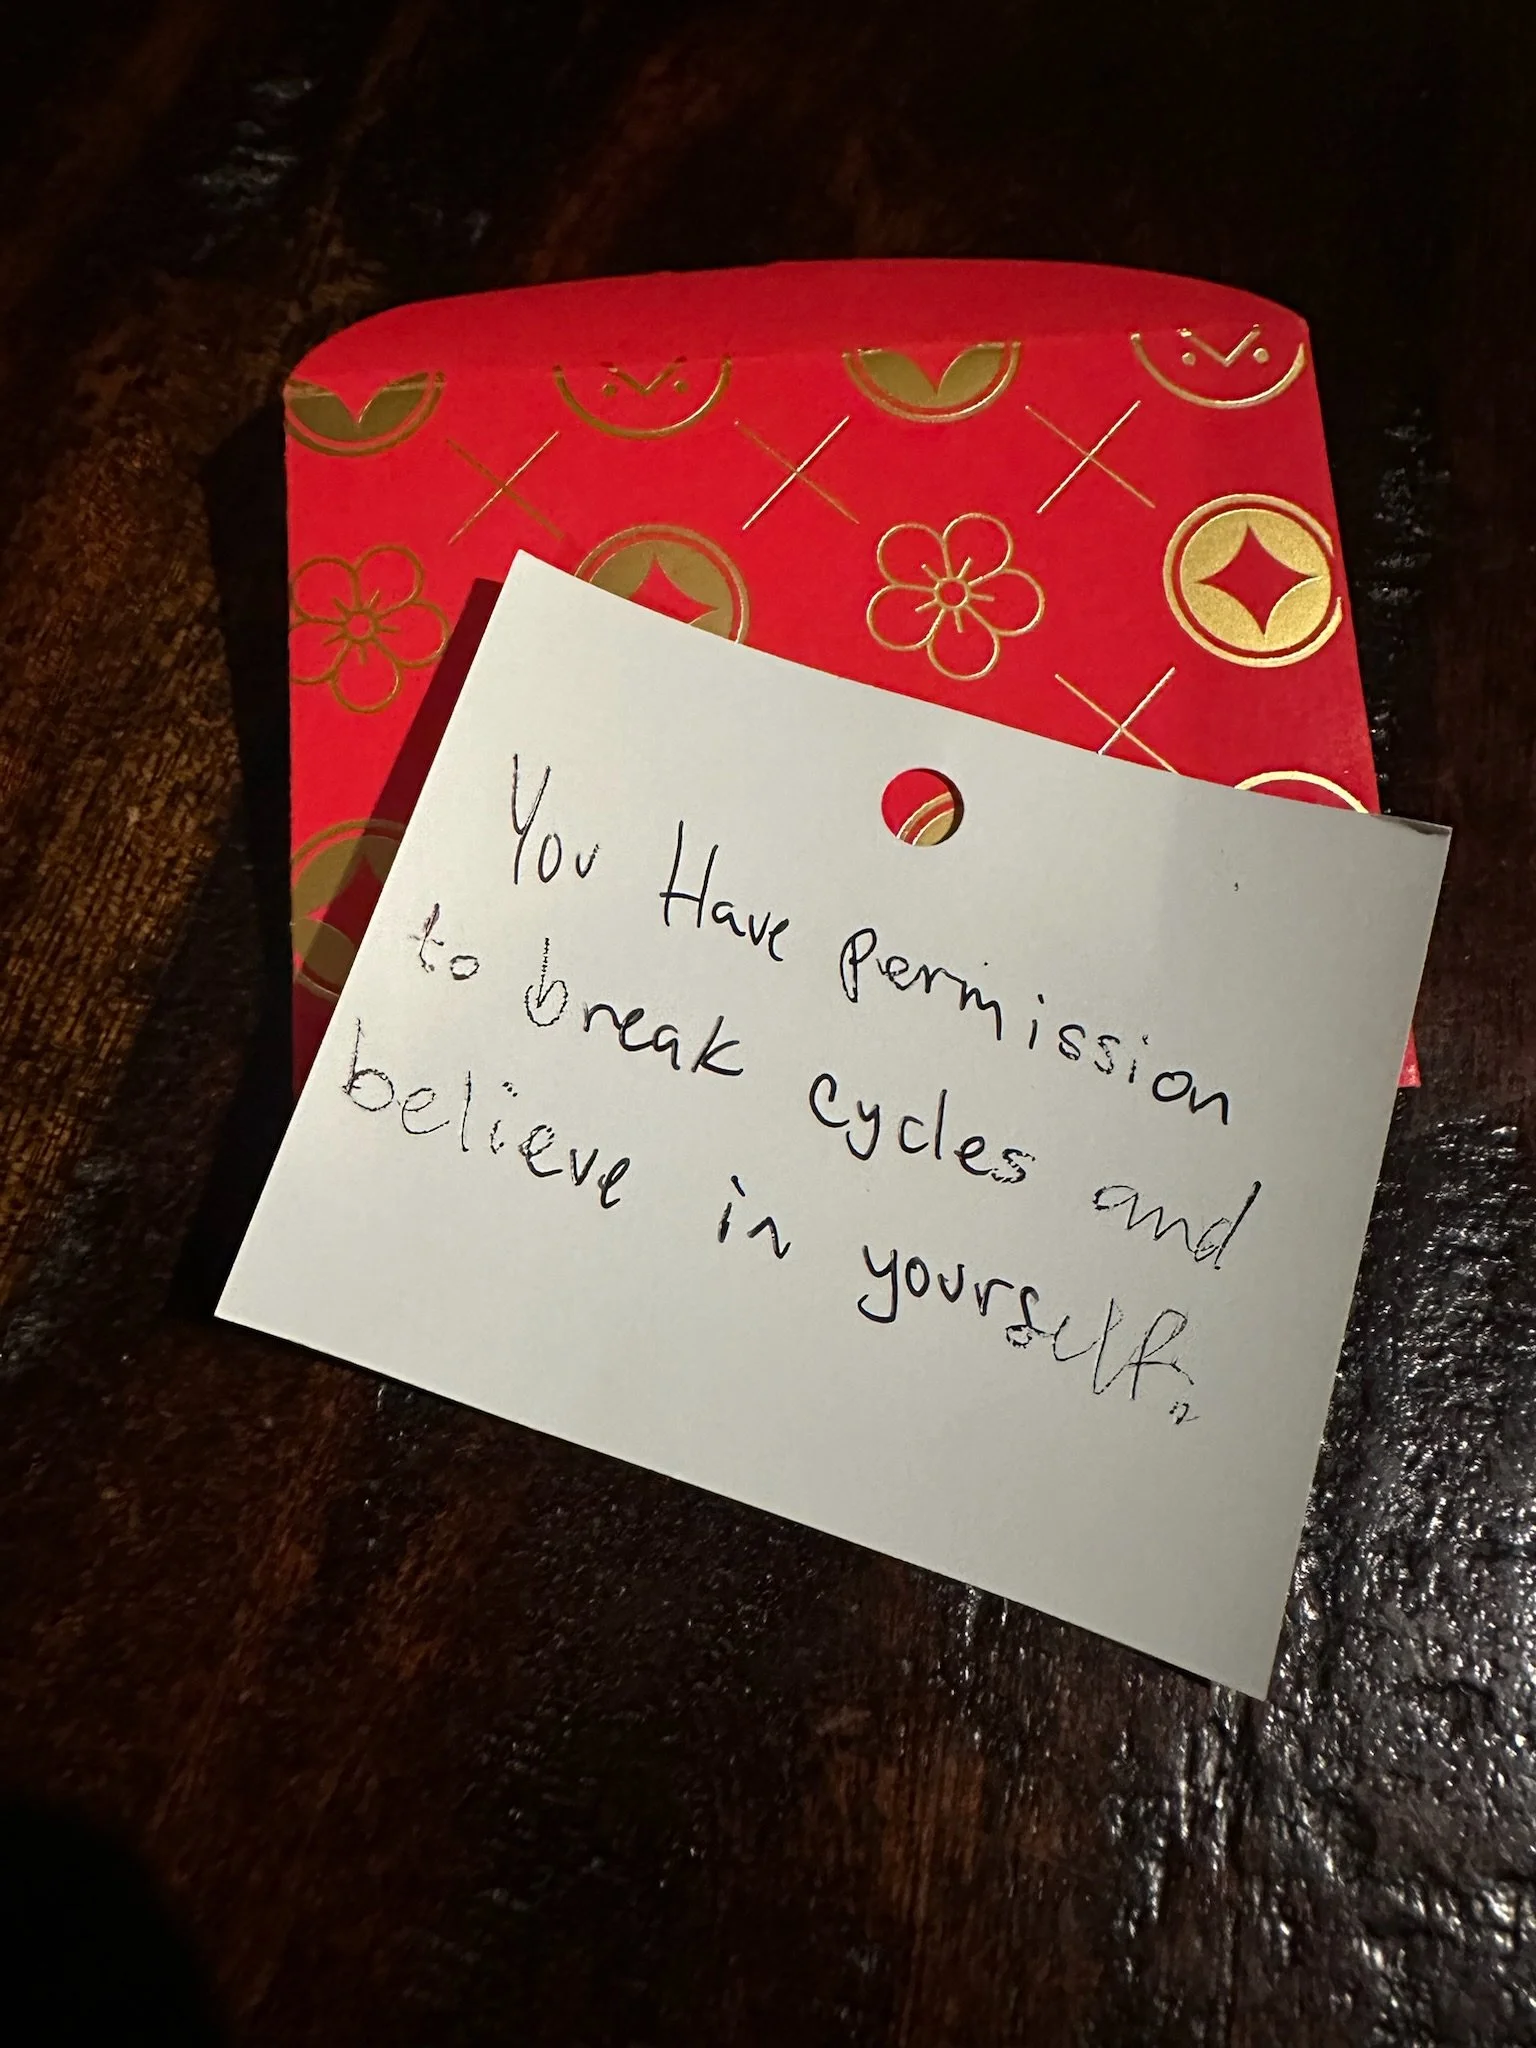 You Have permission
to break cycles and
believe in yourself.